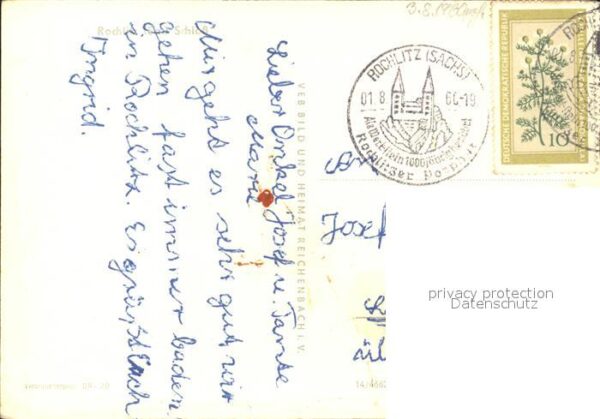 Lieber Onkel Josef u. Tante
Marie
Mir geht es sehr gut, wir
gehen fast immer baden
in Rochlitz. Es grüßt Euch
Ingrid.
Rochlitz
Schloß
VEB BILD UND HEIMAT REICHENBACH I. V.
3.8.1960
ROCHLITZ (SACHS)
01.8. 60-19
Rochlitzer Porphyr
DEUTSCHE DEMOKRATISCHE REPUBLIK
10
Josef
privacy protection
Datenschutz